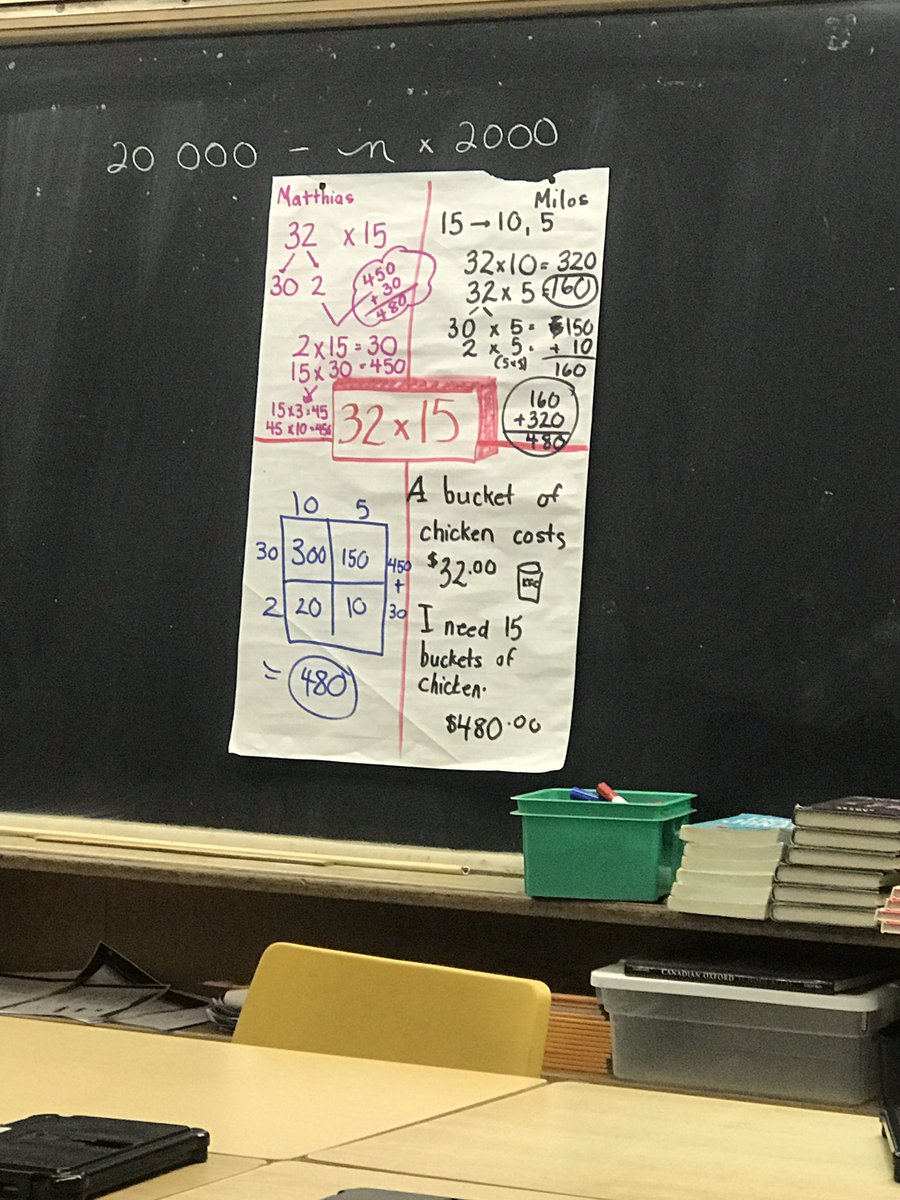 20 000 - n x 2000
Matthias
32 x 15
30 2
450
+ 30
480
2 x 15 = 30
15 x 30 = 450
15 x 3 = 45
45 x 10 = 450
Milos
15 → 10, 5
32 x 10 = 320
32 x 5 = 160
30 x 5 = $150
2 x 5 = + 10
(5+5)
160
160
+320
480
32 x 15
10 5
30 300 150 450
+
2 20 10 30
= 480
A bucket of
chicken costs
$32.00
KFC
I need 15
buckets of
chicken.
$480.00
CANADIAN OXFORD